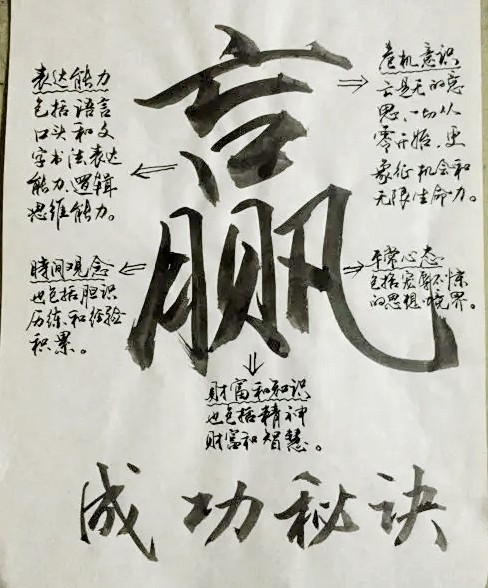 赢
危机意识
亡是无的意
思，一切从
零开始，更
象征机会和
无限生命力。
表达能力
包括语言
口头和文
字书法表达
能力、逻辑
思维能力。
時间观念
也包括胆识
历练和经验
积累。
财富和知识
也包括精神
财富和智慧。
平常心态
包括宠辱不惊
的思想境界。
成功秘诀